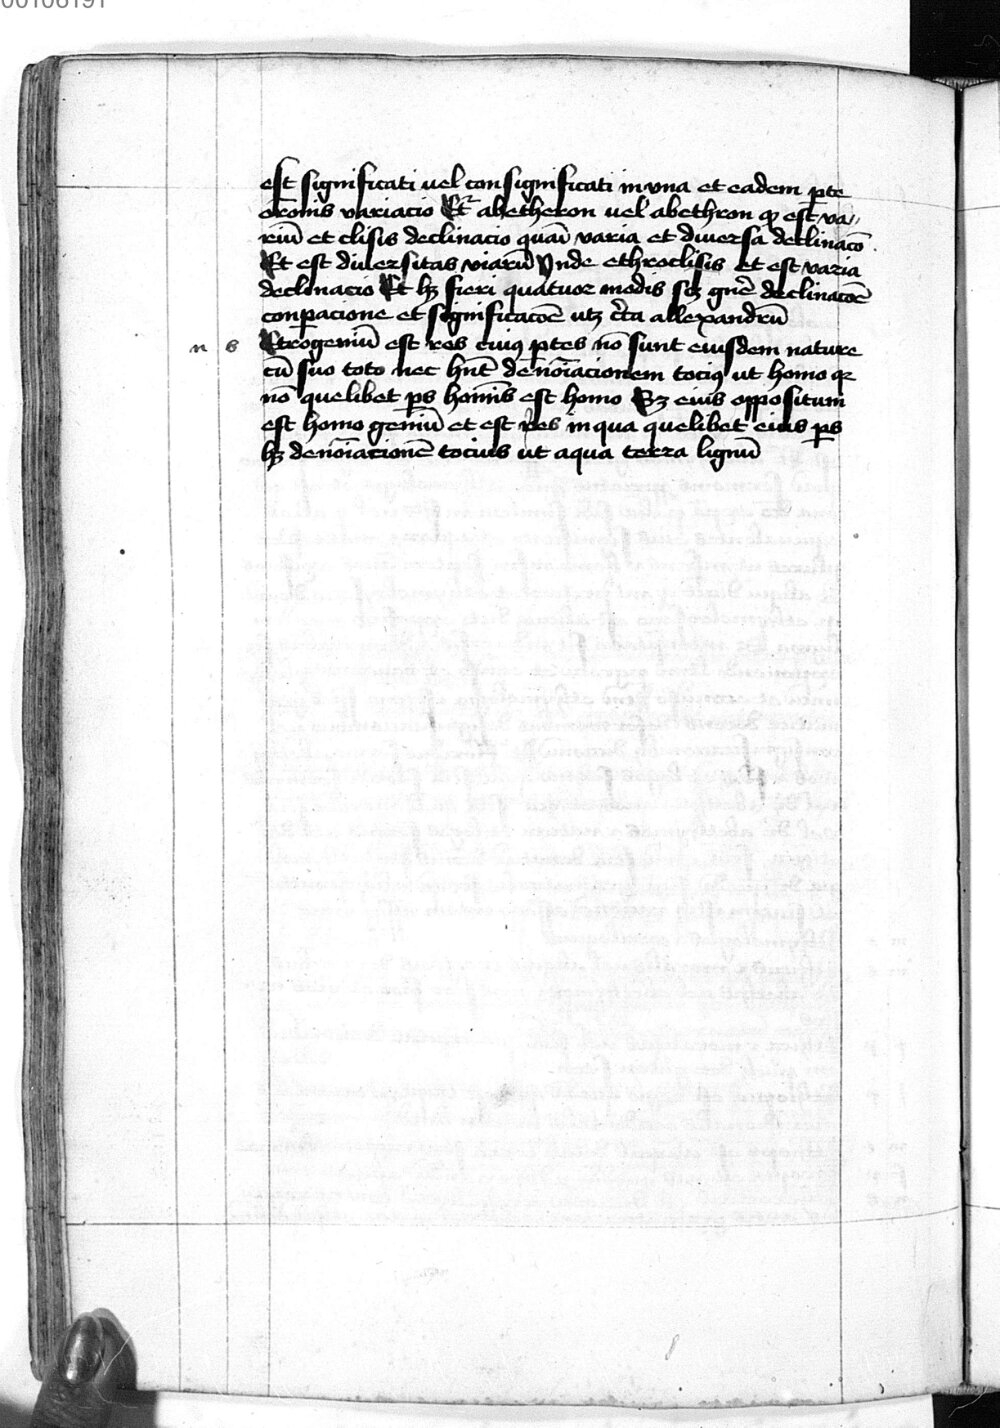 00106191
est significati uel consignificati in vna et eadem pͣte
orōnis variacio Et abetheron uel abethron qd est va//
riū et clisis declinacio quasi varia et diuersa declinacō
Et est diuersitas viarū Vnde ethroclisis et est varia
declinacio Et hꝫ fieri quatuor modis scꝫ gn̄e declinacōe
conꝑacione et significacōe utꝫ cͣta allexandrū
n e Etrogeniū est res cuiꝯ ꝑtes nō sunt eiusdem nature
cū suo toto nec hn̄t denōiacionem tociꝯ ut homo qꝛ
nō quelibet ꝑs homīs est homo Sꝫ eius oppositum
est homogeniū et est res in qua quelibet eius ꝑs
hꝫ denōiacionē tocius ut aqua terra lignū